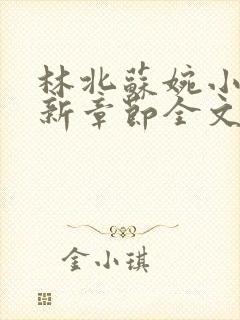 林北蘇婉小
新章節全文
金小琪